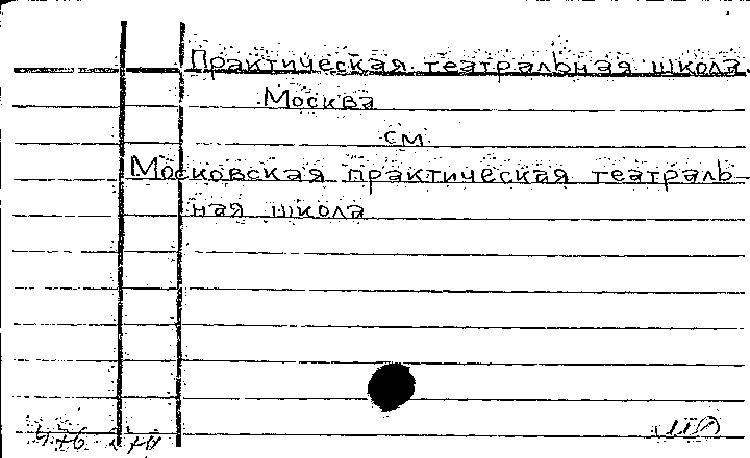 Практическая театральная школа.
Москва
см.
Московская практическая театраль-
ная школа